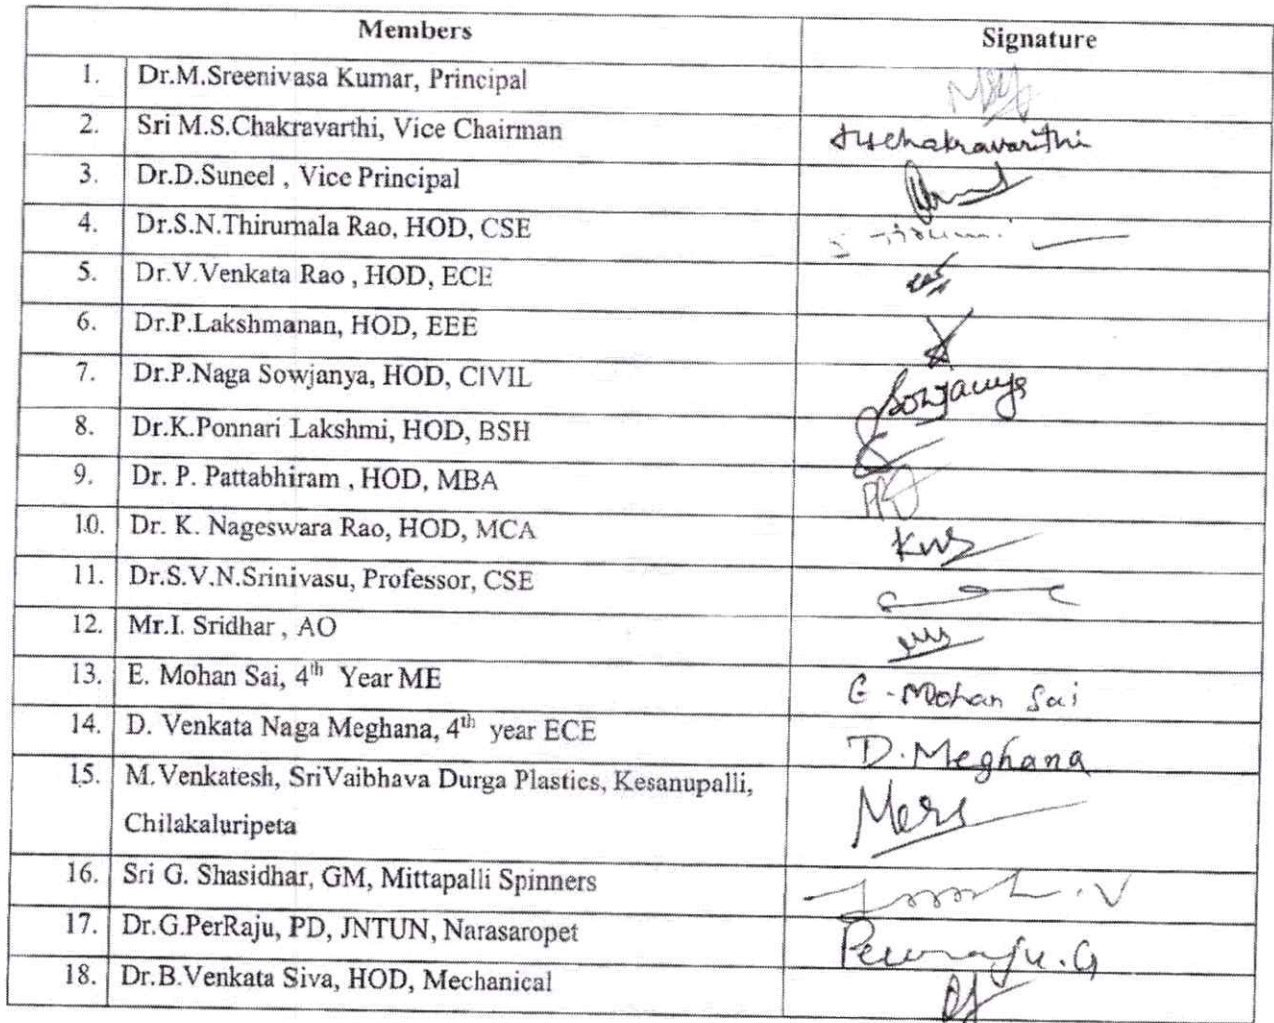 Members Signature
1. Dr.M.Sreenivasa Kumar, Principal
2. Sri M.S.Chakravarthi, Vice Chairman
3. Dr.D.Suneel , Vice Principal
4. Dr.S.N.Thirumala Rao, HOD, CSE
5. Dr.V.Venkata Rao , HOD, ECE
6. Dr.P.Lakshmanan, HOD, EEE
7. Dr.P.Naga Sowjanya, HOD, CIVIL Sowjanya
8. Dr.K.Ponnari Lakshmi, HOD, BSH
9. Dr. P. Pattabhiram , HOD, MBA
10. Dr. K. Nageswara Rao, HOD, MCA
11. Dr.S.V.N.Srinivasu, Professor, CSE
12. Mr.I. Sridhar , AO
13. E. Mohan Sai, 4th Year ME E - Mohan Sai
14. D. Venkata Naga Meghana, 4th year ECE D. Meghana
15. M.Venkatesh, SriVaibhava Durga Plastics, Kesanupalli,
Chilakaluripeta
16. Sri G. Shasidhar, GM, Mittapalli Spinners
17. Dr.G.PerRaju, PD, JNTUN, Narasaropet
18. Dr.B.Venkata Siva, HOD, Mechanical